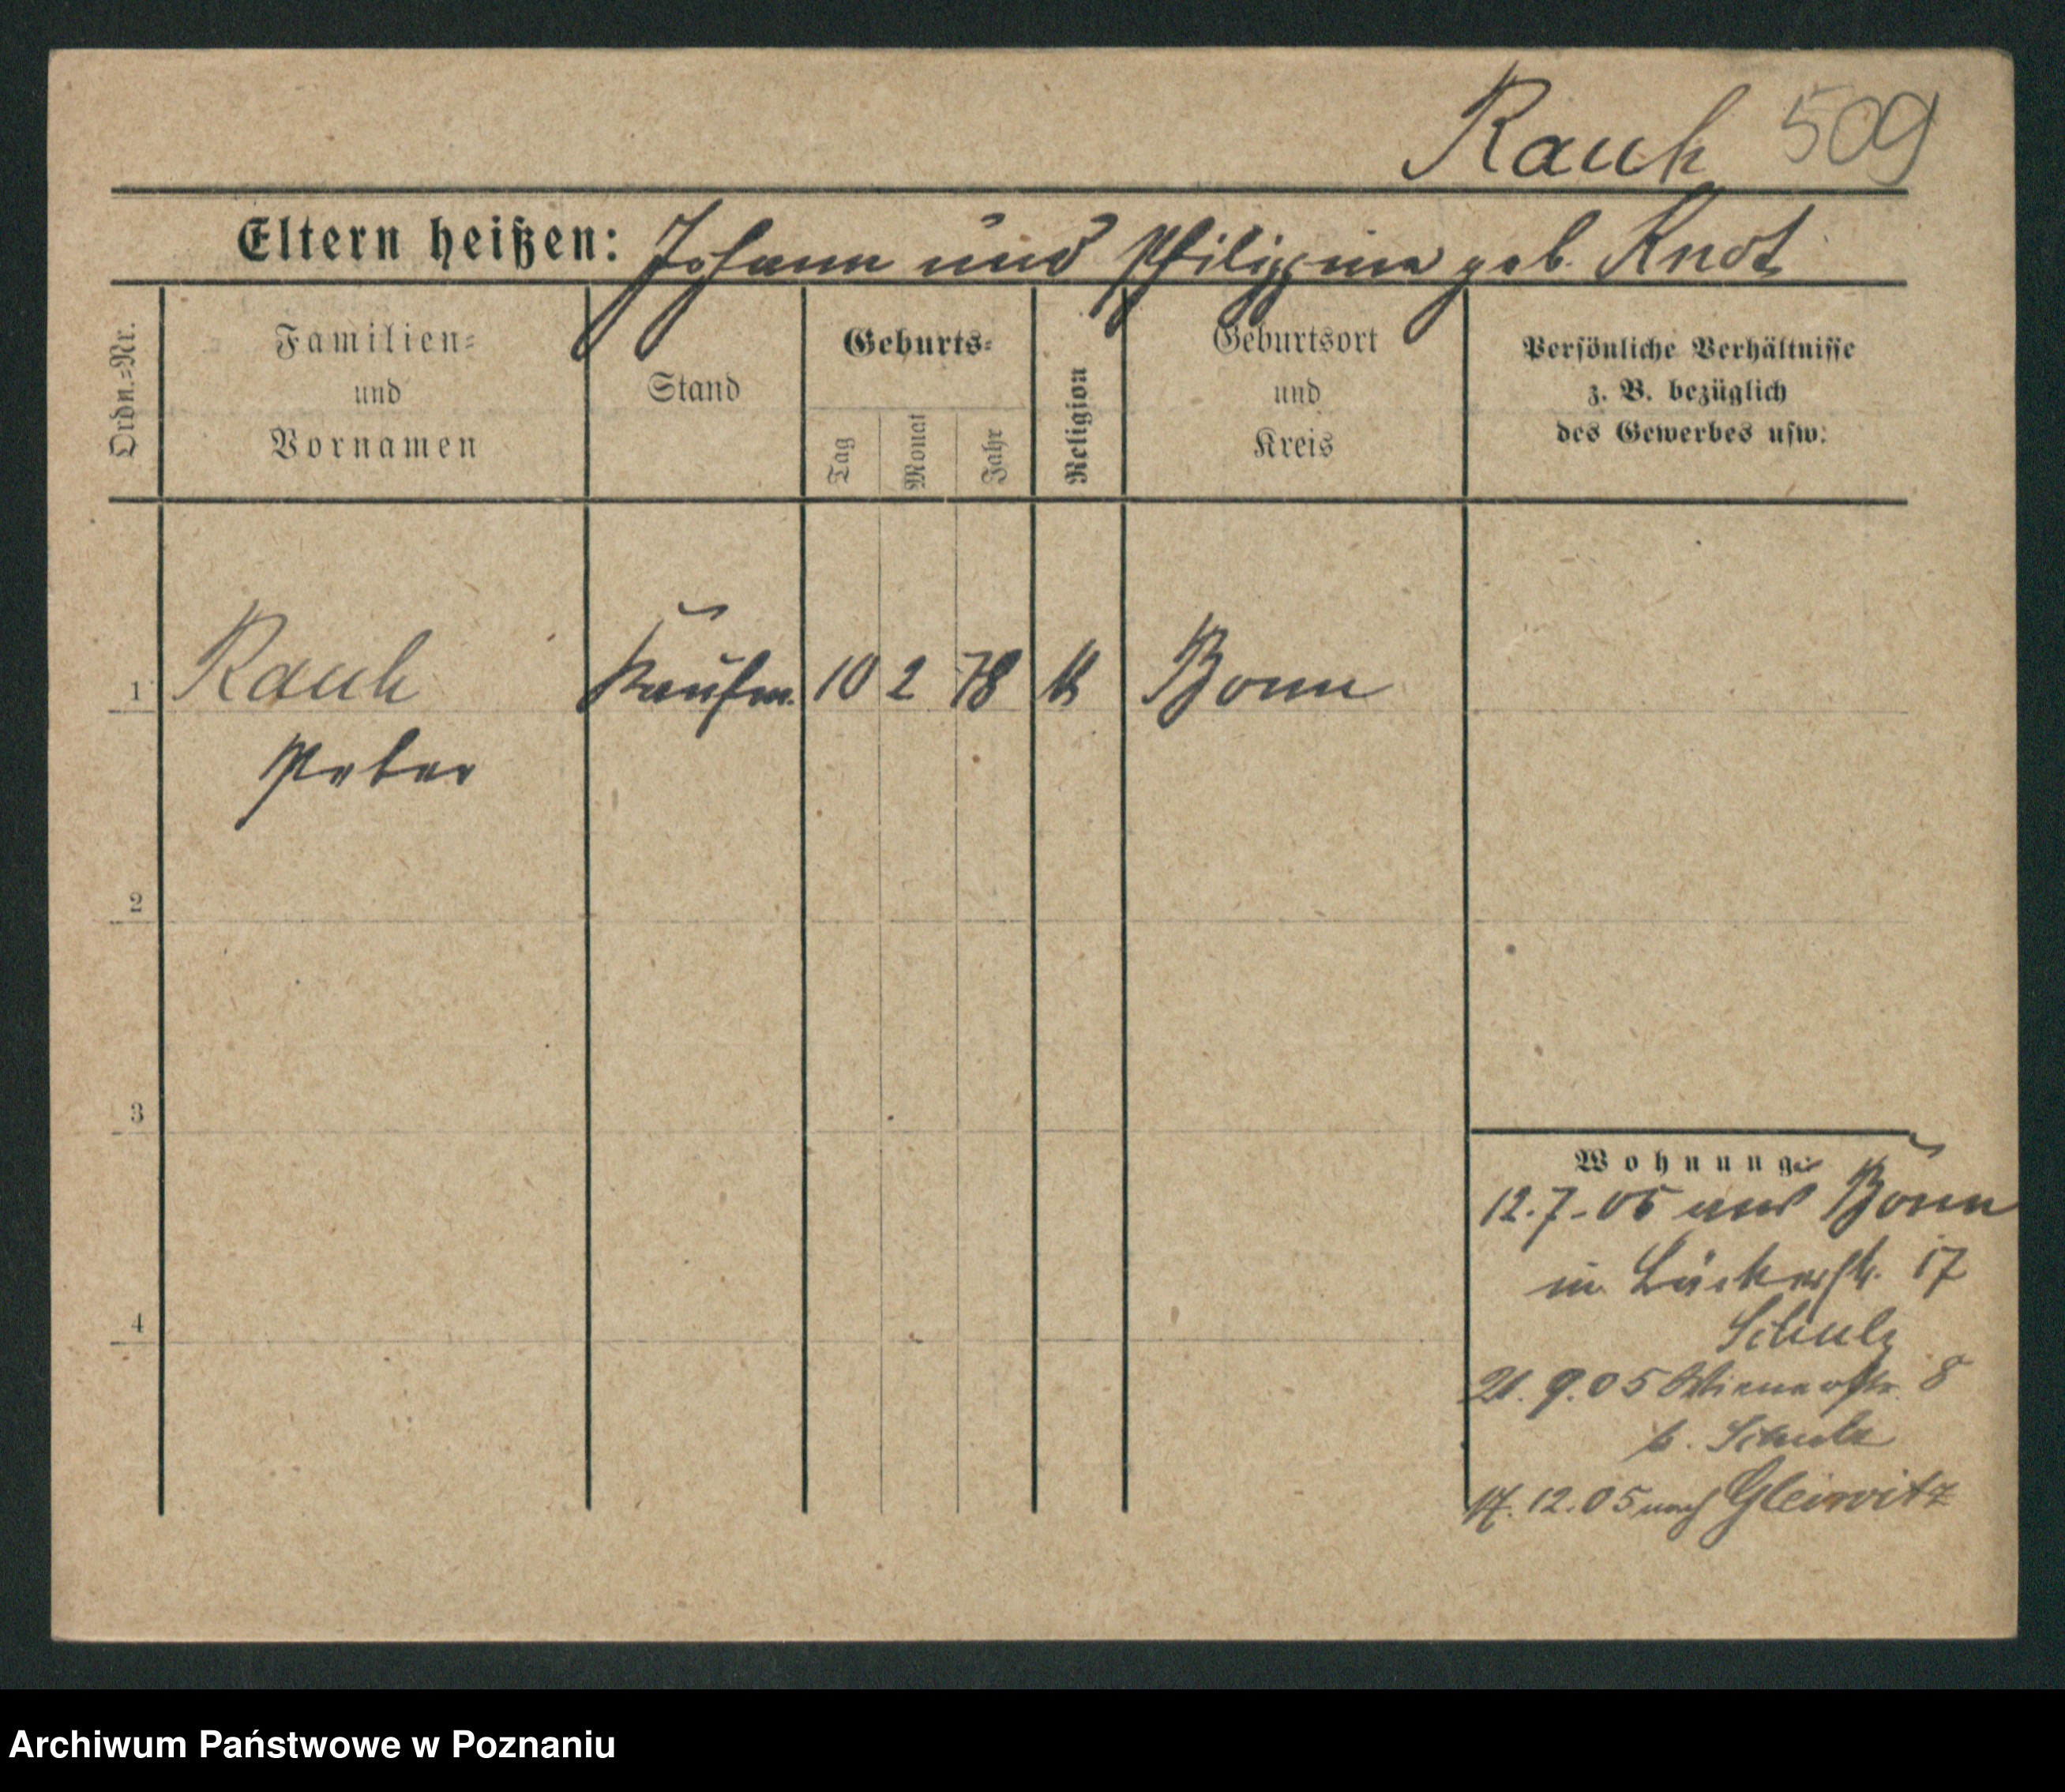 Rauh 509
Eltern heißen: Johann und Philippina geb. Knot
Ordn.=Nr.
Familien=
und
Vornamen
Stand
Geburts=
Tag
Monat
Jahr
Religion
Geburtsort
und
Kreis
Persönliche Verhältnisse
z. B. bezüglich
des Gewerbes usw.
1 Rauh Kaufm. 10 2 78 k Bonn
Peter
2
3
4
Wohnung:
12.7.05 aus Bonn
in 17
Schulz
21.9.05 Wienerstr. 8
b. Schulz
17.12.05 nach Gleiwitz
Archiwum Państwowe w Poznaniu